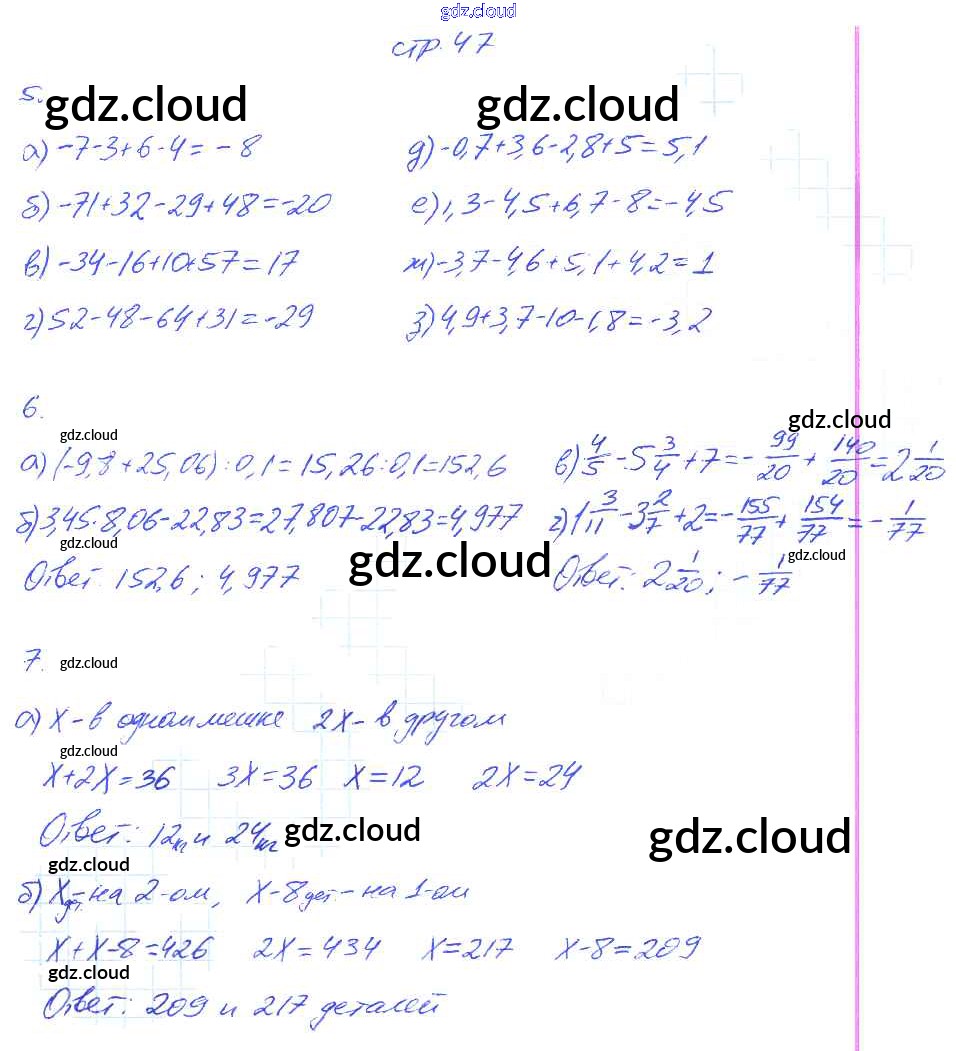 gdz.cloud
стр. 47
5.
gdz.cloud gdz.cloud
а) -7-3+6-4 = -8
д) -0,7+3,6-2,8+5=5,1
б) -71+32-29+48=-20
е) 1,3-4,5+6,7-8=-4,5
в) -34-16+10+57=17
ж) -3,7-4,6+5,1+4,2=1
г) 52-48-64+31=-29
з) 4,9+3,7-10-1,8=-3,2
6.
gdz.cloud
gdz.cloud
а) (-9,8+25,06):0,1=15,26:0,1=152,6
в) 4/5 - 5 3/4 + 7 = - 99/20 + 140/20 = 2 1/20
б) 3,45·8,06-22,83=27,807-22,83=4,977
г) 1 3/11 - 3 2/7 + 2 = - 155/77 + 154/77 = - 1/77
gdz.cloud
gdz.cloud
gdz.cloud
Ответ: 152,6; 4,977
Ответ: 2 1/20; - 1/77
7.
gdz.cloud
а) х - в одном мешке 2х - в другом
gdz.cloud
х+2х=36 3х=36 х=12 2х=24
Ответ: 12кг и 24кг
gdz.cloud
gdz.cloud
gdz.cloud
б) х дет. - на 2-ом, х-8 дет - на 1-ом
х+х-8=426 2х=434 х=217 х-8=209
gdz.cloud
Ответ: 209 и 217 деталей